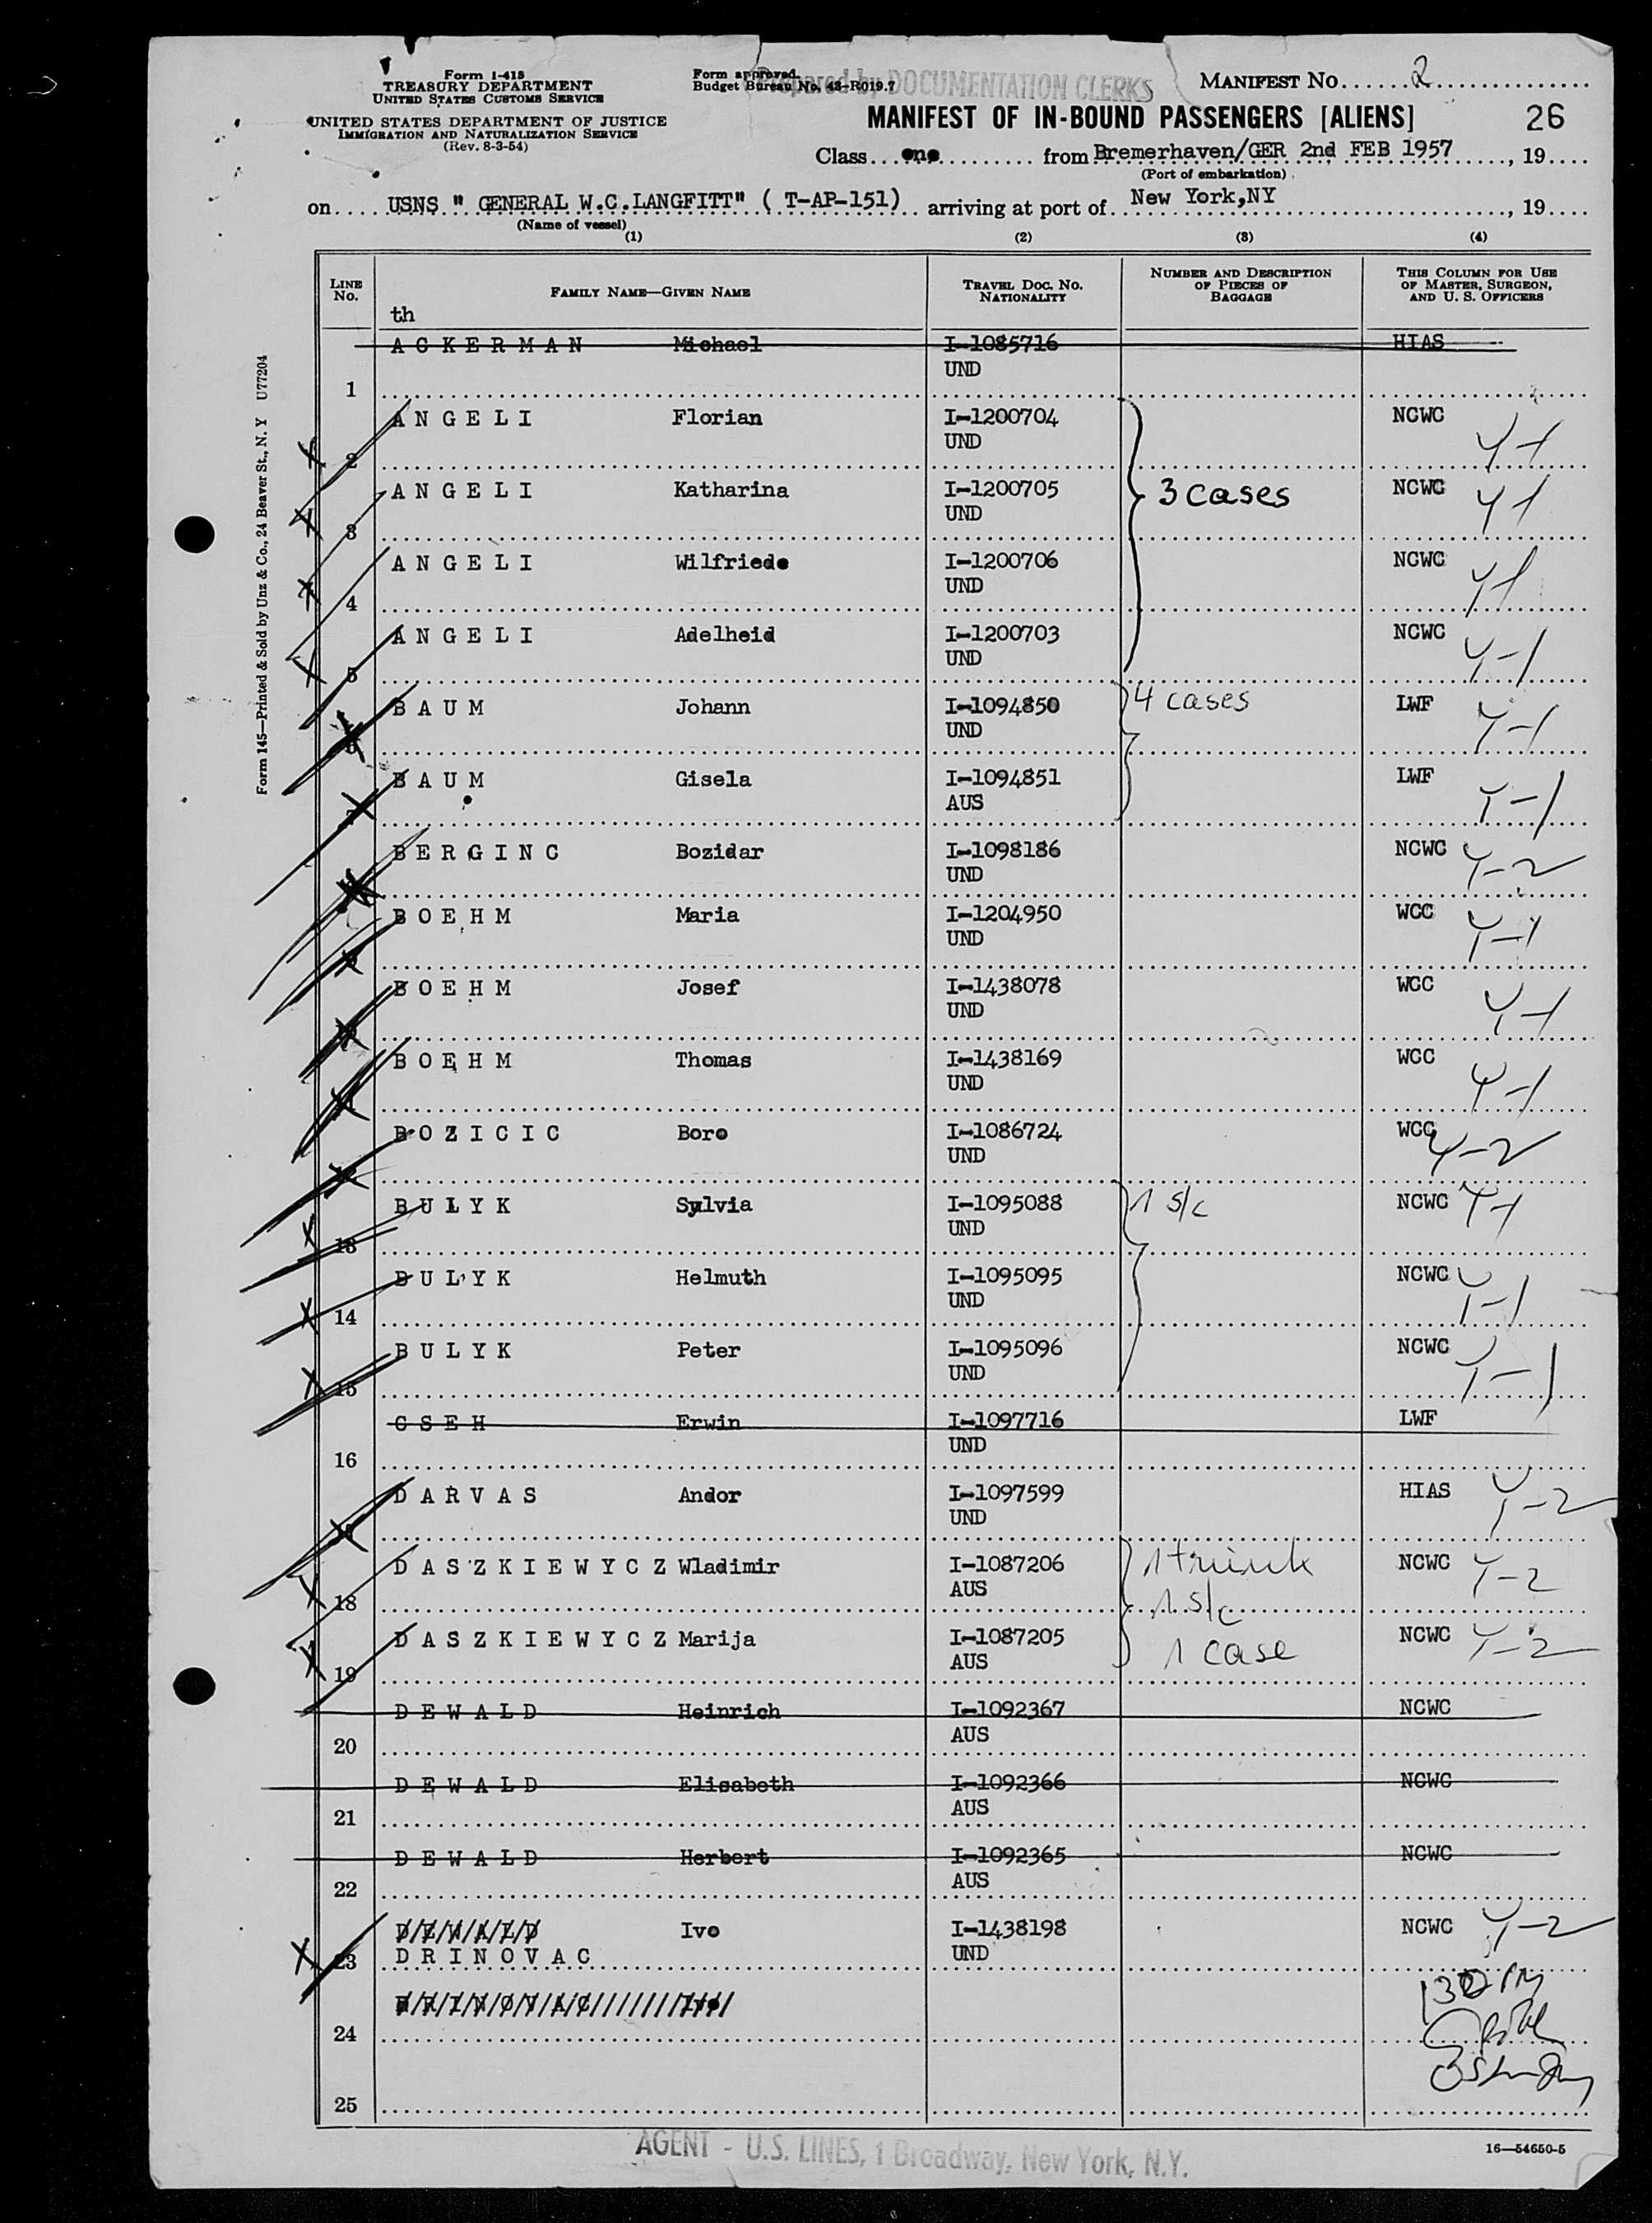 Form I-415
TREASURY DEPARTMENT
UNITED STATES CUSTOMS SERVICE
UNITED STATES DEPARTMENT OF JUSTICE
IMMIGRATION AND NATURALIZATION SERVICE
(Rev. 8-3-54)
Form approved.
Budget Bureau No. 43-R019.7
Prepared by DOCUMENTATION CLERKS
MANIFEST NO. 2
MANIFEST OF IN-BOUND PASSENGERS [ALIENS]
26
Class one from Bremerhaven/GER 2nd FEB 1957, 19
(Port of embarkation)
on USNS " GENERAL W.C.LANGFITT" ( T-AP-151) arriving at port of New York,NY, 19
(Name of vessel)
(1) (2) (3) (4)
LINE NO. FAMILY NAME—GIVEN NAME TRAVEL DOC. NO. NATIONALITY NUMBER AND DESCRIPTION OF PIECES OF BAGGAGE THIS COLUMN FOR USE OF MASTER, SURGEON, AND U. S. OFFICERS
th
1 ACKERMAN Michael I-1085716 HIAS
UND
2 ANGELI Florian I-1200704 NCWC Y-1
UND
3 ANGELI Katharina I-1200705 3 cases NCWC Y1
UND
4 ANGELI Wilfriede I-1200706 NCWC Y1
UND
5 ANGELI Adelheid I-1200703 NCWC Y-1
UND
6 BAUM Johann I-1094850 4 cases LWF Y-1
UND
7 BAUM Gisela I-1094851 LWF Y-1
AUS
8 BERGINC Bozidar I-1098186 NCWC Y-2
UND
9 BOEHM Maria I-1204950 WCC Y-1
UND
10 BOEHM Josef I-1438078 WCC Y-1
UND
11 BOEHM Thomas I-1438169 WCC Y-1
UND
12 BOZICIC Boro I-1086724 WCC Y-2
UND
13 BULYK Sylvia I-1095088 1 s/c NCWC Y-1
UND
14 BULYK Helmuth I-1095095 NCWC Y-1
UND
15 BULYK Peter I-1095096 NCWC Y-1
UND
16 CSEH Erwin I-1097716 LWF
UND
17 DARVAS Andor I-1097599 HIAS Y-2
UND
18 DASZKIEWYCZ Wladimir I-1087206 1 trunk NCWC Y-2
AUS 1 s/c
19 DASZKIEWYCZ Marija I-1087205 1 case NCWC Y-2
AUS
20 DEWALD Heinrich I-1092367 NCWC
AUS
21 DEWALD Elisabeth I-1092366 NCWC
AUS
22 DEWALD Herbert I-1092365 NCWC
AUS
23 DEWALD Ivo I-1438198 NCWC Y-2
DRINOVAC UND
24 DRINOVAC Ivo
25
Form 145—Printed & Sold by Unz & Co., 24 Beaver St., N. Y U77204
16—54650-5
AGENT - U.S. LINES, 1 Broadway, New York, N.Y.